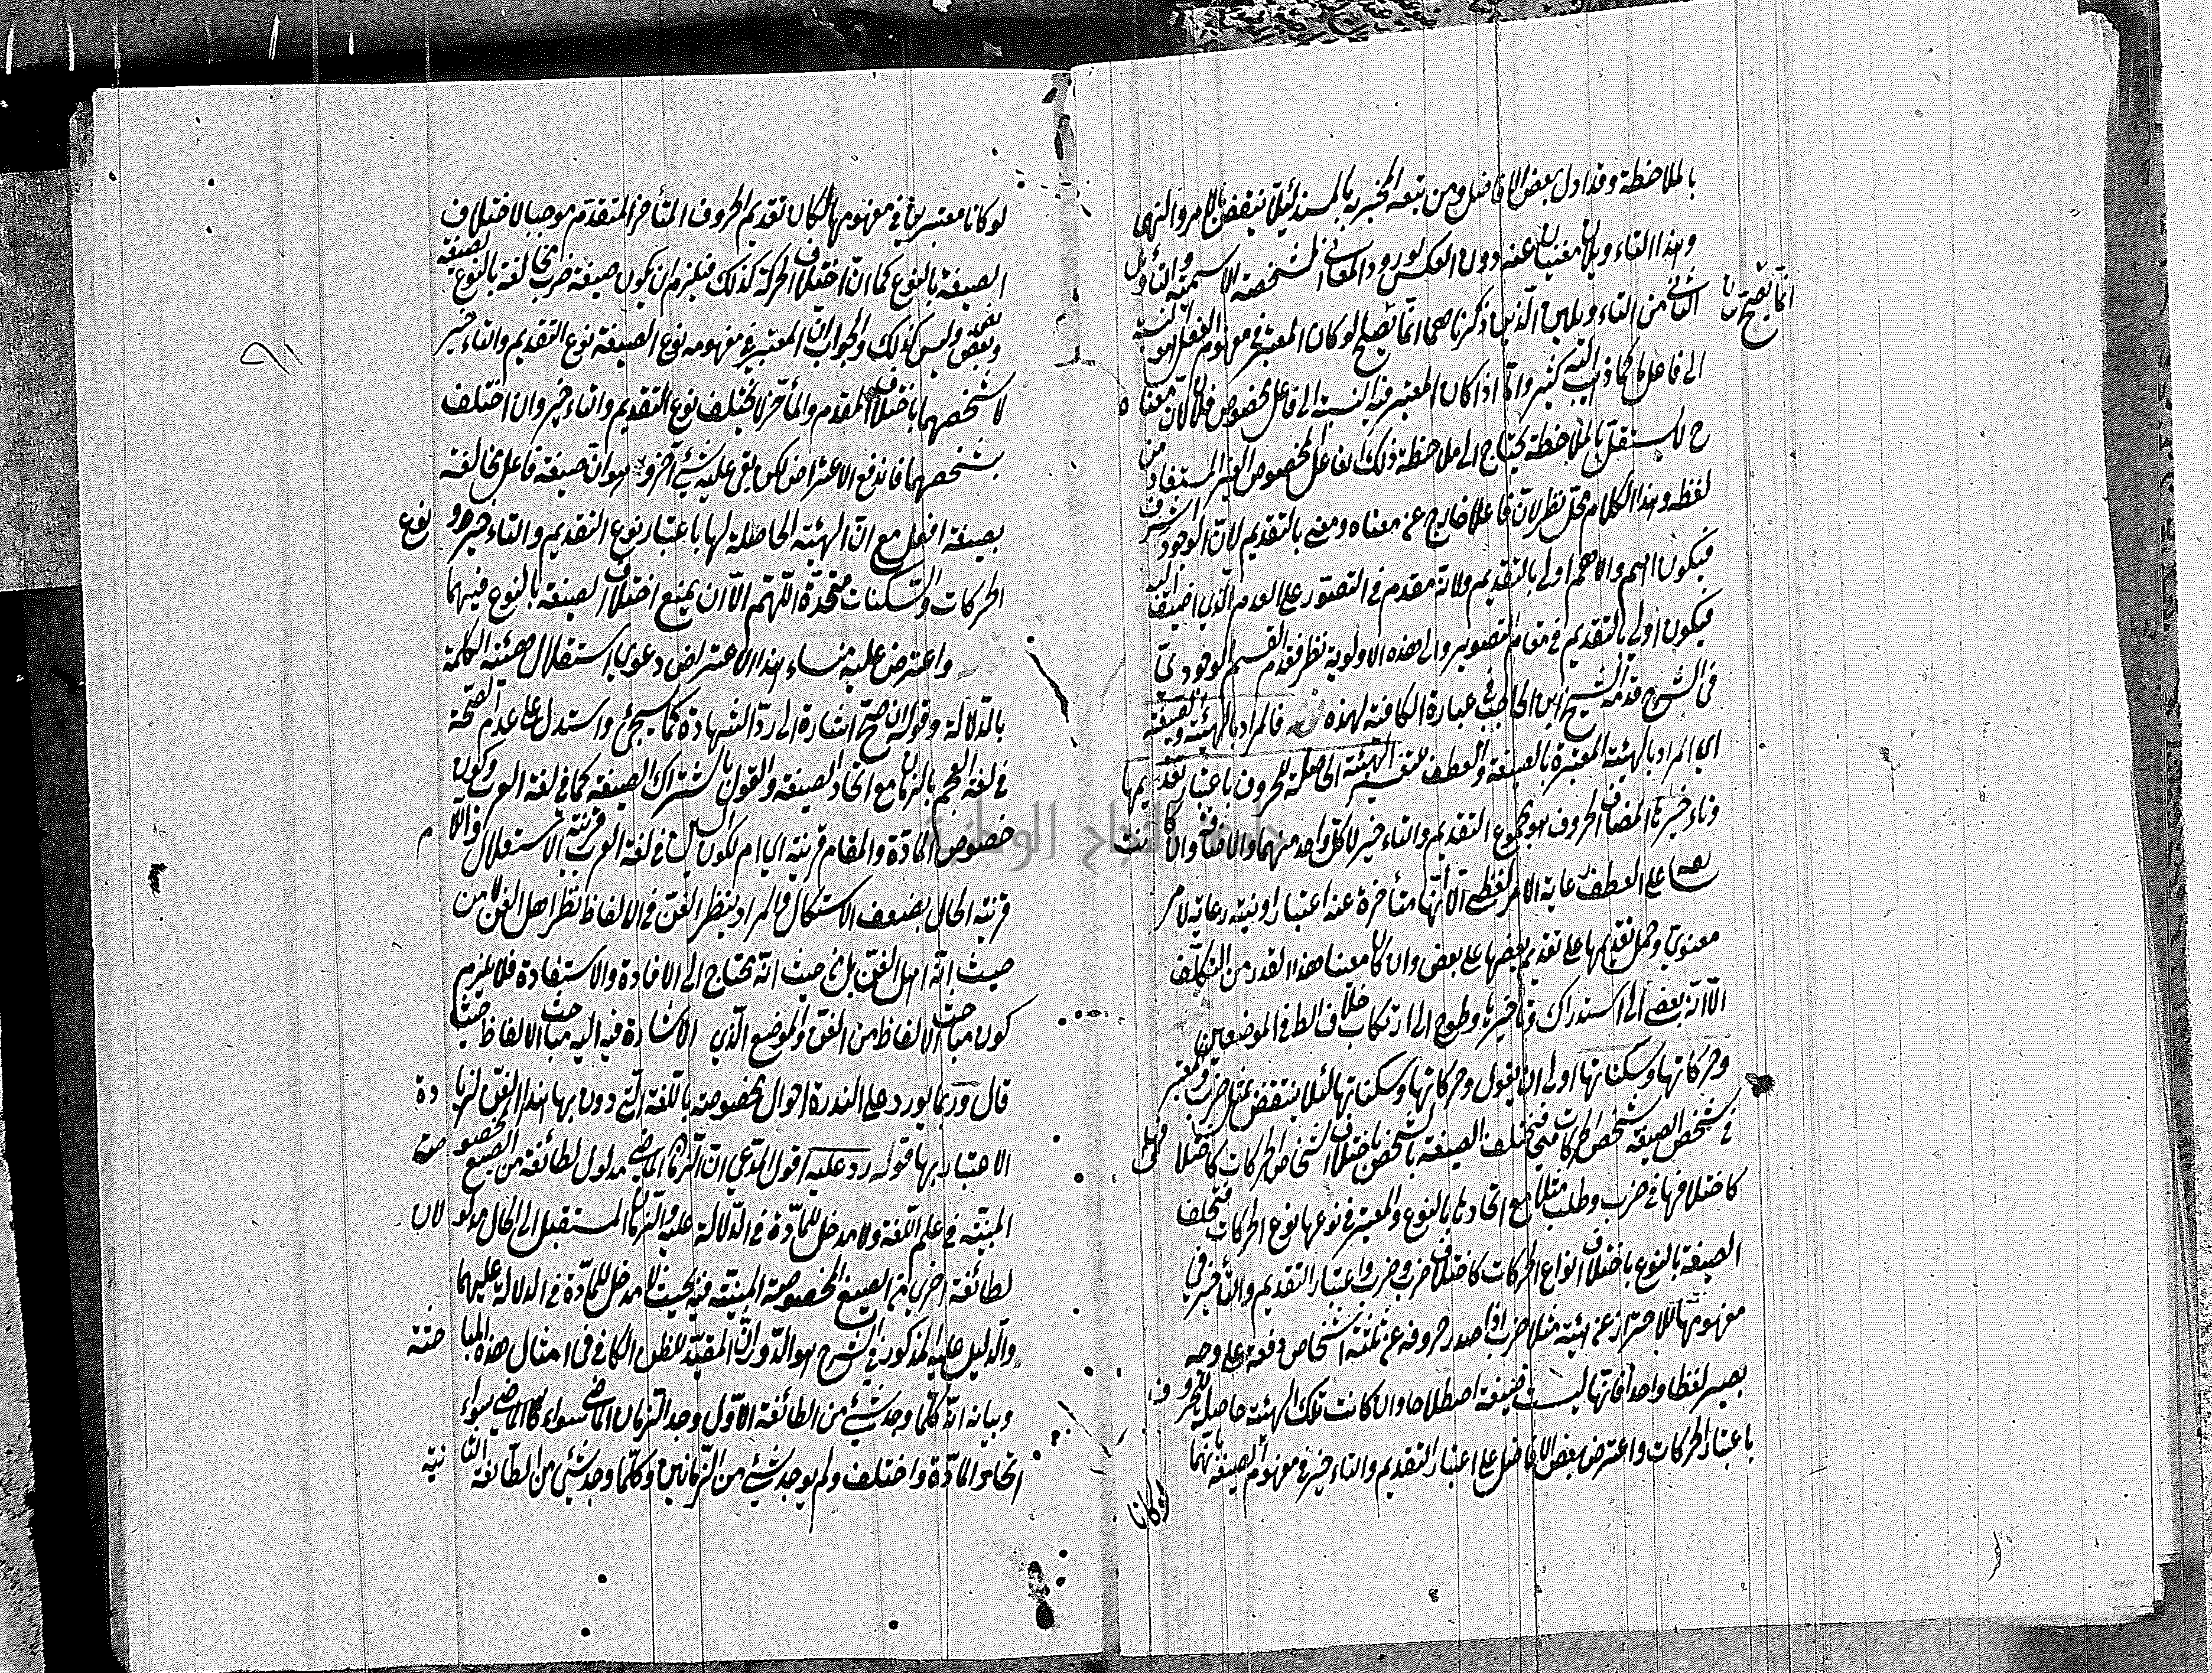 بالملاحظة وقد اول بعض الافاضل ومن تبعه المخبر به بالمسند لئلا ينتقض بالامر والنهى
وهذا التاءويلان مغنيان عنه دون العكس لورود المعانى المشخصة الاسمية والتأويل
الثانى من التاءويلين الذين ذكرناهما انما يصلح لو كان المعتبر فى مفهوم الفعل هو النسبة
انما يصح ان
الى فاعل ما كما ذهب اليه كثير واما اذا كان المعتبر فيه النسبة الى فاعل مخصوص فلا لان معناه
ح لا يستقل بالملاحظة يحتاج الى ملاحظة ذلك الفاعل المخصوص الغير المستفاد من
لفظه وهذا الكلام محل نظر لان فاعلا خارج عن معناه ومضى بالتقديم لان الوجود اشرف
فيكون اهم والاهم اولى بالتقديم ولانه مقدم فى التصور على العدم الذى اضيف اليه
فيكون اولى بالتقديم فى مقام التصوير والى هذه الاولوية نظر فقدم القسم الوجودى
فى الشرح قدمه الشيخ ابن الحاجب فى عبارة الكافية لهذه فالمراد بالهيئة والصيغة
اى المراد بالهيئة المعتبرة بالصيغة والعطف للتفسير الهيئة الحاصلة للحروف باعتبار تقديمها
وتاءخيرها المضاف الحروف هو مجموع التقديم والتاءخير لا كل واحد منهما والاضافة وان كانت
على العطف رعاية الامر لفظى الا انها متأخرة عنه اعتبارا ونية رعاية لامر
معنوى وحمل تقديمها على تقديم بعضها على بعض وان كان معنا هذا القدر من التكلف
الا انه يفضى الى استدراك وتاخيرها وطوح الى ارتكاب خلاف الظ فى الموضعين
وحركاتها وسكناتها اولى ان يقول وحركاتها وسكناتها لئلا ينتقض بمثل ضرب والمعتبر
فى شخص الصيغة شخص الحركات فيختلف الصيغة بالشخص باختلاف اشخاص الحركات كاختلافها
كاختلافها فى ضرب وطلب مثلا مع اتحادها بالنوع والمعتبر فى نوعها نوع الحركات فتختلف
الصيغة بالنوع باختلاف انواع الحركات كاختلاف ضرب وضرب واعتبار التقديم والتأخير فى
مفهومها للاحتراز عن هيئة مثل ضرب اذا صدر حروفه عن ثلثة اشخاص دفعة على وجه
يصير لفظا واحدا فانها ليست صيغة اصطلاحا وان كانت تلك الهيئة حاصلة للحروف
باعتبار الحركات واعترض بعض الافاضل على اعتبار التقديم والتاءخير فى مفهوم الصيغة بانهما
لو كانا
لو كانا معتبرين فى مفهومها لكان تقديم الحروف المتأخر المتقدم موجبا لاختلاف
الصيغة بالنوع كما ان اختلاف الحركة كذلك فيلزم ان يكون صيغة ضرب مخالفة بالنوع لصيغة
وليس كذلك والجواب ان المعتبر فى مفهومه نوع الصيغة نوع التقديم والتاءخير
لا شخصهما باختلاف المقدم والمأخر لا يختلف نوع التقديم والتاءخير وان اختلف
بشخصهما فاندفع الاعتراض لكن بقى عليه شئ آخر وهو ان صيغة فاعل مخالفة
بصيغة افعل مع ان الهيئة الحاصلة لها باعتبار نوع التقديم والتاءخير ونوع
الحركات والسكنات متحدة اللهم الا ان يمنع اختلاف الصيغة بالنوع فيهما
واعترض عليه منساء هذا الاعتراض دعوى استقلال هيئة الكلمة
بالدلالة وقوله ان صح اشارة الى رد الشهادة كما سيجئ واستدل على عدم الصحة
فى لغة العجم بالزمان مع اتحاد الصيغة والقول باشتراك الصيغة كما فى لغة العرب وكون
خصوص المادة والمقام قرينة اى ام لكون ليس فى لغة العرب قرينة الاستقلال والا
قرينة الحال يضعف الاستكال فالمراد بنظر الفن فى الالفاظ نظر اهل الفن لا من
حيث انه اهل الفن بل من حيث انه يحتاج الى الافادة والاستفادة فلا يلزم
كون مباحث الالفاظ من الفن والموضع الذى الاشادة فيه اليه مباحث الالفاظ حيث
قال وربما يورد على الندرة احوال مخصوصة باللغة التى دون بها هذا الفن لزيادة
الاعتبار بها قوله رد عليه اقول المدعى ان الزمان الماضى مدلول لطائفة من الصيغ المخصوصة
المبنية فى علم اللغة ولا مدخل للمادة فى الدلالة عليه والزمان المستقبل الى الحال مدلولان
لطائفة اخرى من الصيغ المخصوصة المبنية فيه بحيث لا مدخل للمادة فى الدلالة عليهما
والدليل عليه المذكور فى الشرح هو الدوران المفيد للظن الكافى فى امثال هذه المباحثة
وبيانه انه كلما وجد شئ من الطائفة الاول وجد الزمان الماضى سواء
اتحد المادة واختلف ولم يوجد شئ من الزمانين وكلما وجد شئ من الطائفة الثانية